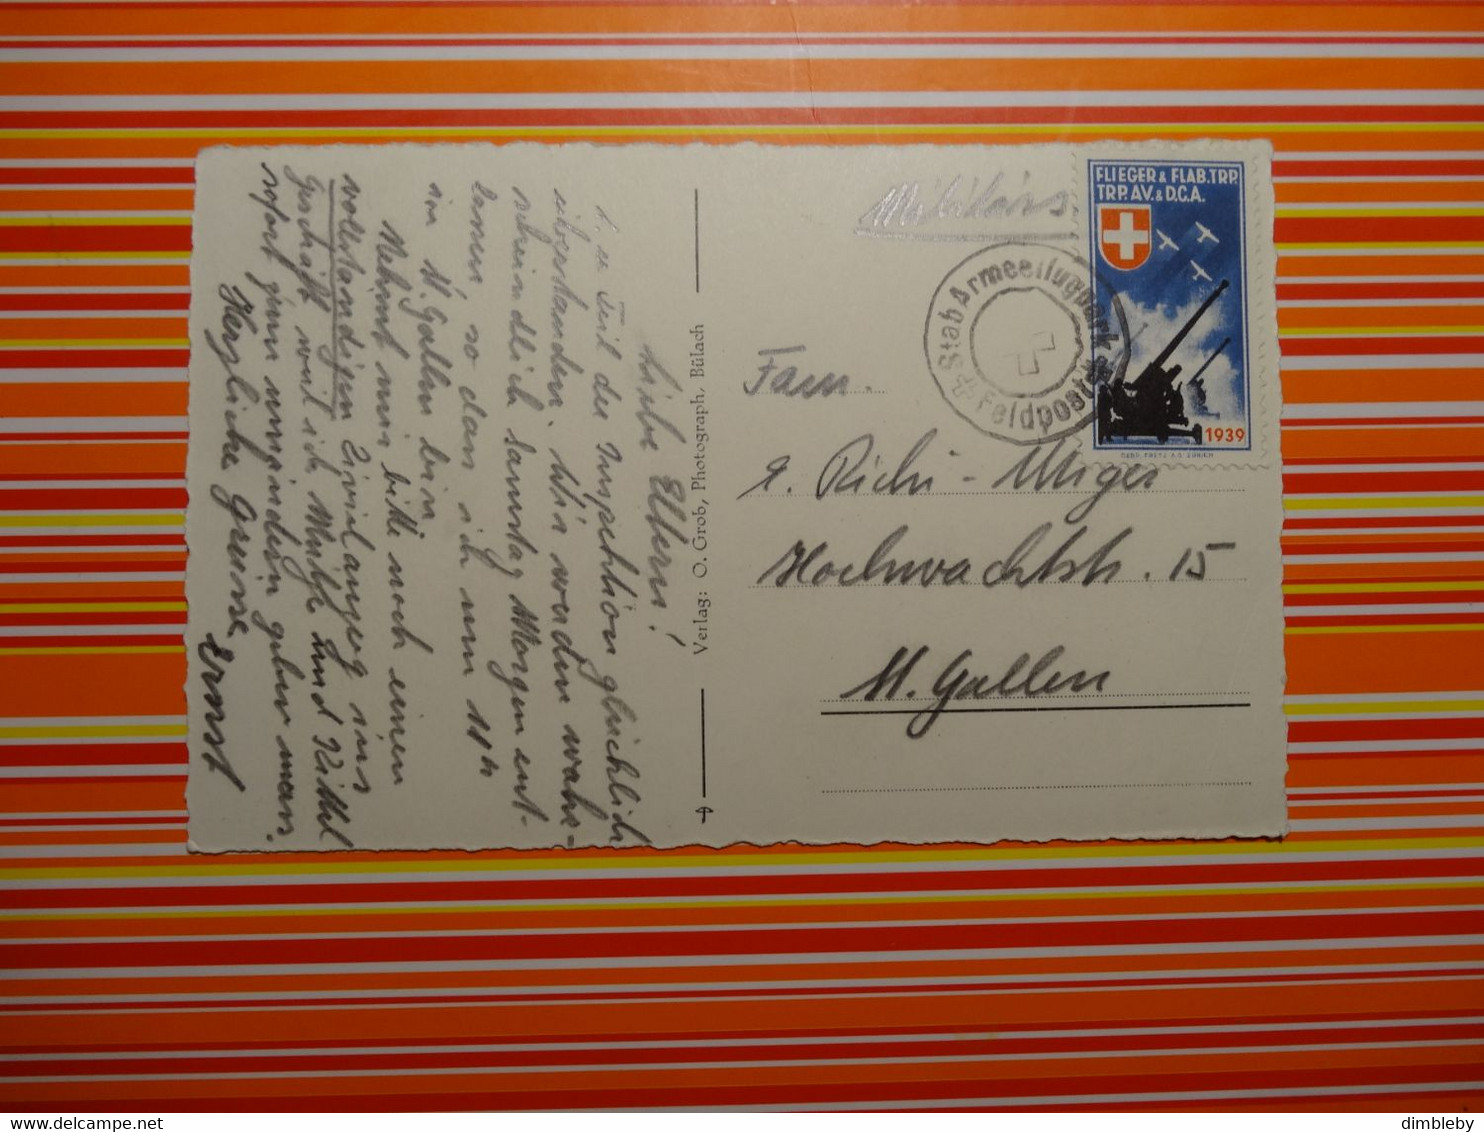 Liebe Eltern!
1. u Teil der Inspektion glücklich
überstanden. Wir werden wahr-
scheindlich Samstag Morgen ent-
lassen, so dass ich um 11 h
in St. Gallen bin.
Nehmt mir bitte noch einen
vollständigen Zivilanzug ins
Geschäft weil ich Mütze und Kittel
sofort zum umändern geben muss.
Herzliche Grüsse
Ernst
Verlag: O. Grob, Photograph, Bülach
Militärs
FLIEGER & FLAB.TRP.
TRP. AV. & D.C.A.
1939
GEBR. FRETZ A.G. ZÜRICH
Stab Armeeflugpark
Feldpost
Fam.
E. Richi - Unger
Hochwachtstr. 15
St. Gallen
delcampe.net
dimbleby